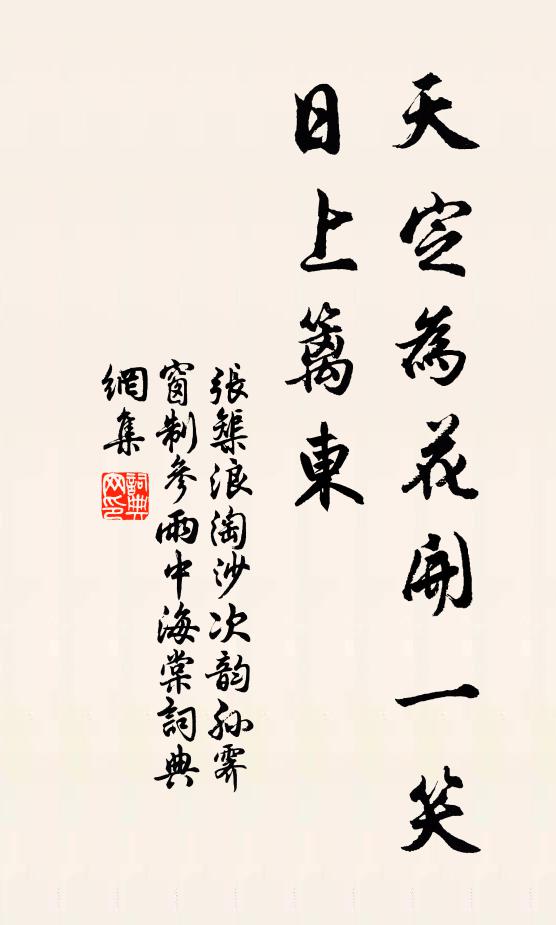 天定為花開一笑
日上籬東
張榘浪淘沙次韵孫霽
窗制參雨中海棠詞典
網集
詞典
网印